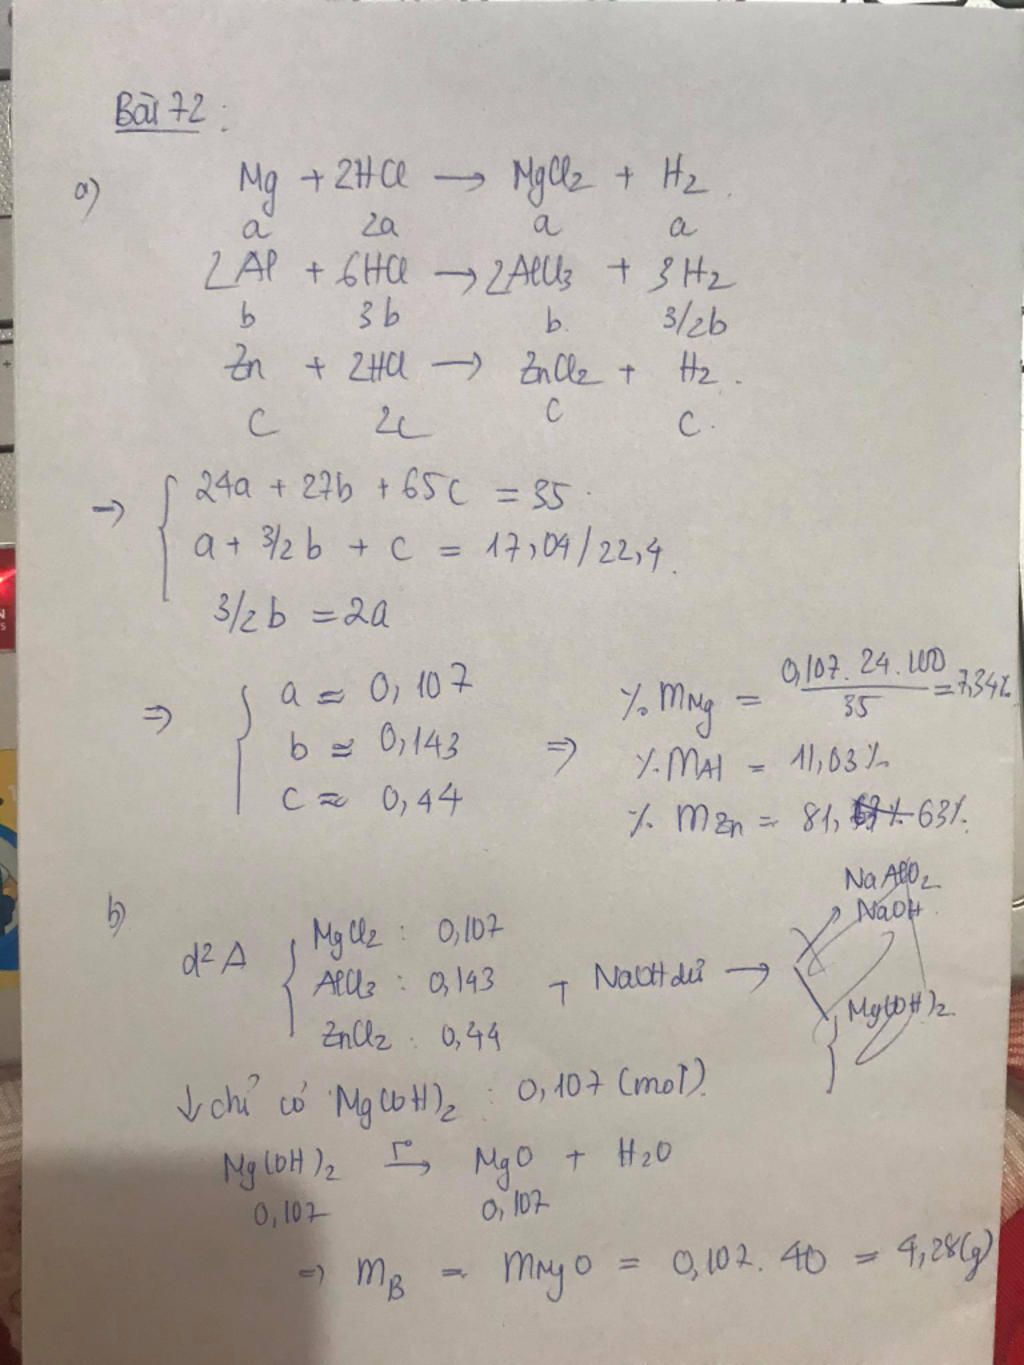 Bài 72:
a) Mg + 2HCl → MgCl2 + H2.
a 2a a a
2Al + 6HCl → 2AlCl3 + 3H2
b 3b b. 3/2b
Zn + 2HCl → ZnCl2 + H2.
c 2c c c.
→ { 24a + 27b + 65c = 35.
a + 3/2b + c = 17,04/22,4.
3/2b = 2a
⇒ { a ≈ 0,107
b ≈ 0,143
c ≈ 0,44
⇒ % mMg = 0,107. 24. 100 / 35 = 7,34%
% mAl = 11,03%
% mZn = 81, 63%.
b) d² A { MgCl2 : 0,107
AlCl3 : 0,143
ZnCl2 : 0,44
+ NaOH dư →
NaAlO2
NaOH
Mg(OH)2
↓ chỉ có Mg(OH)2 : 0,107 (mol).
Mg(OH)2 →(T°) MgO + H2O
0,107 0,107
⇒ mB = mMgO = 0,107. 40 = 4,28(g)